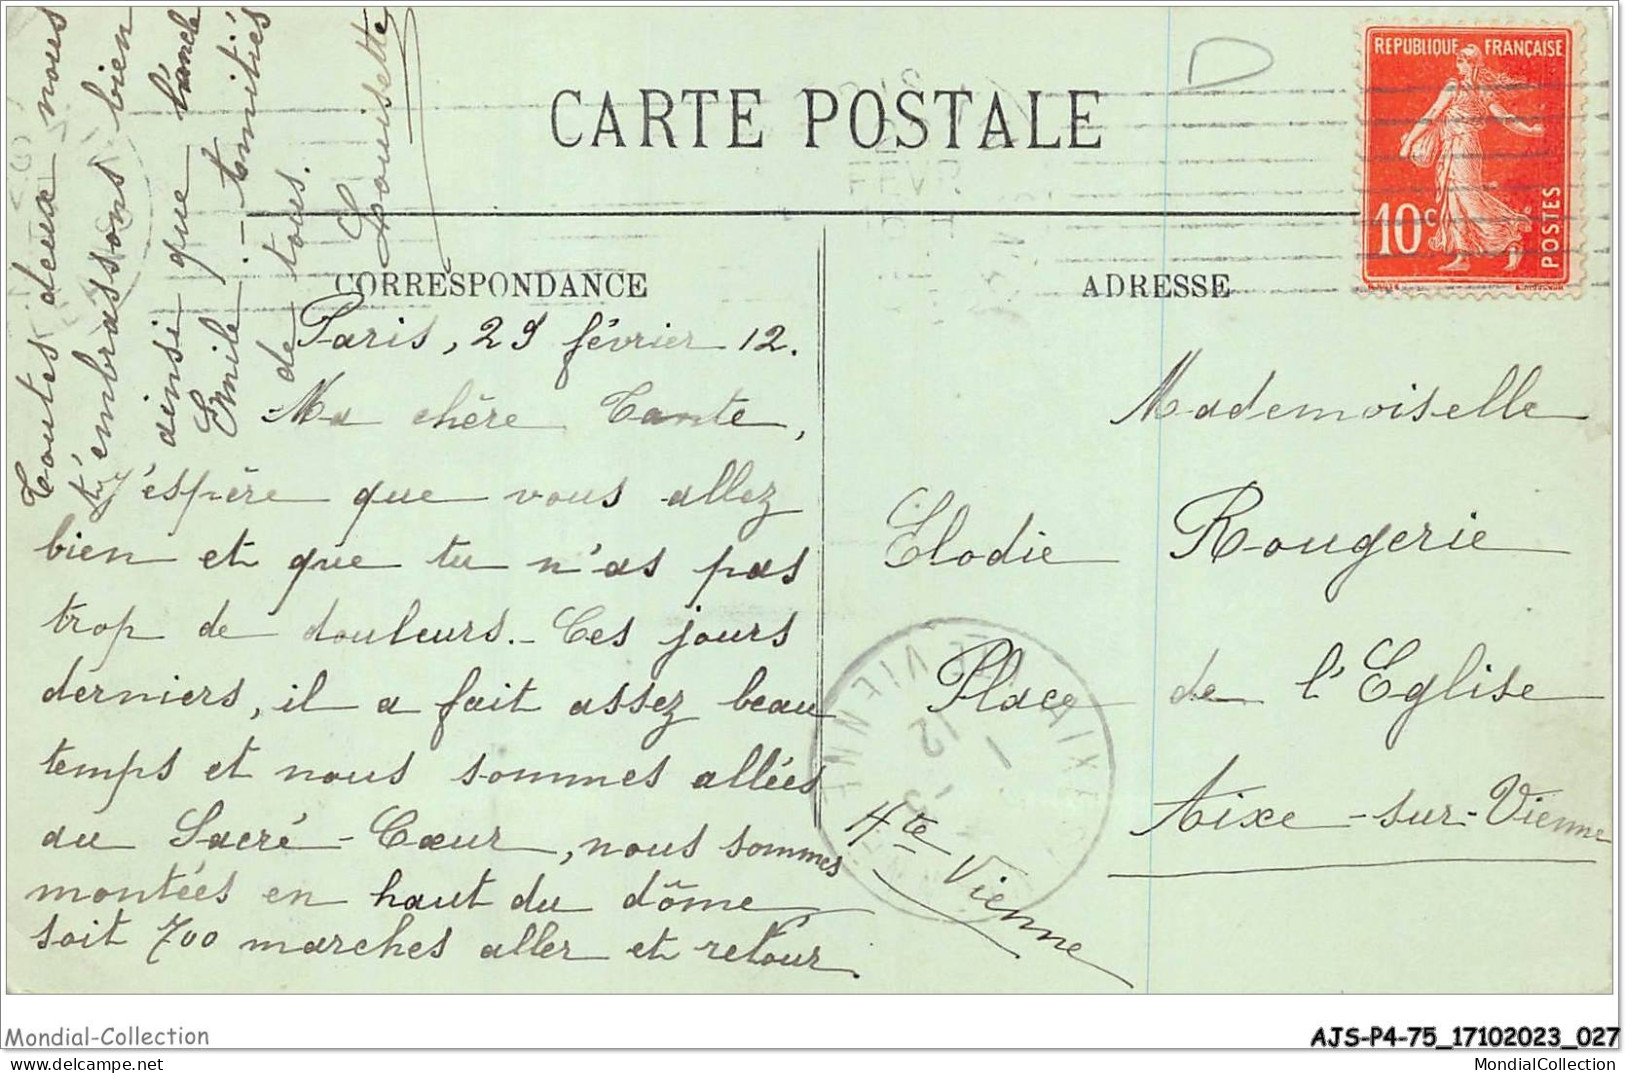 CARTE POSTALE
REPUBLIQUE FRANÇAISE
10c
POSTES
CORRESPONDANCE
ADRESSE
Paris, 29 février 12.
Ma chère Tante,
J'espère que vous allez
bien et que tu n'as pas
trop de douleurs. - Ces jours
derniers, il a fait assez beau
temps et nous sommes allées
au Sacré-Cœur, nous sommes
montées en haut du dôme,
soit 700 marches aller et retour.
Toutes deux nous
t'embrassons bien
ainsi que
Emile. - Amitiés
de tous.
Louisette
Mademoiselle
Elodie Rougerie
Place de l'Eglise
Aixe-sur-Vienne
Hte Vienne
AIXE
VIENNE
1 - 3
12
FEVR
Mondial-Collection
AJS-P4-75_17102023_027
MondialCollection